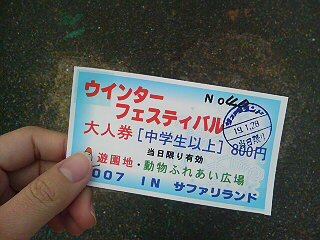 ウインター
フェスティバル
No44
サファリランド
19.1.28
当日限り
大人券[中学生以上]800円
当日限り有効
遊園地・動物ふれあい広場
007 IN サファリランド